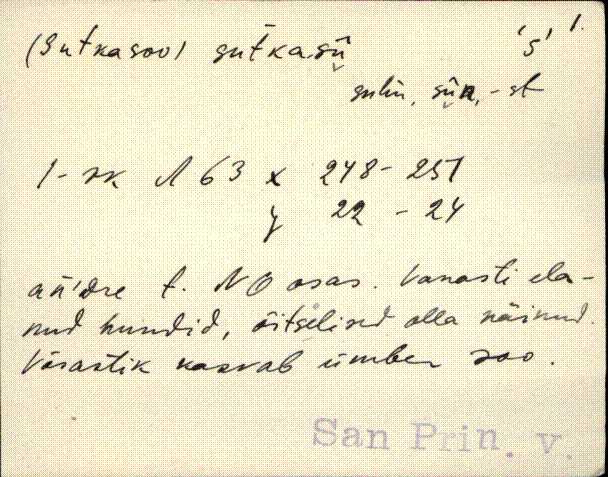 (Sutkasoo) sutkasū 's' 1.
suhu, sūn, -st
1-rk N 63 x 248-251
y 22 - 24
añ'dre t. NO osas. Vanasti ela-
nud hundid, õitselised olla näinud.
Võsastik kasvab ümber soo.
San Prin. v.